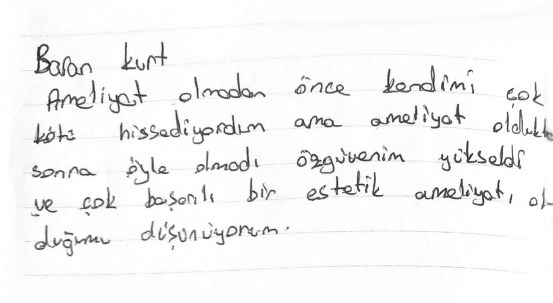 Baran kurt
Ameliyat olmadan önce kendimi çok
kötü hissediyordum ama ameliyat oldukta
sonna öyle olmadı özgüvenim yükseldi
ve çok başarılı bir estetik ameliyatı ol-
duğunu düşünüyorum.